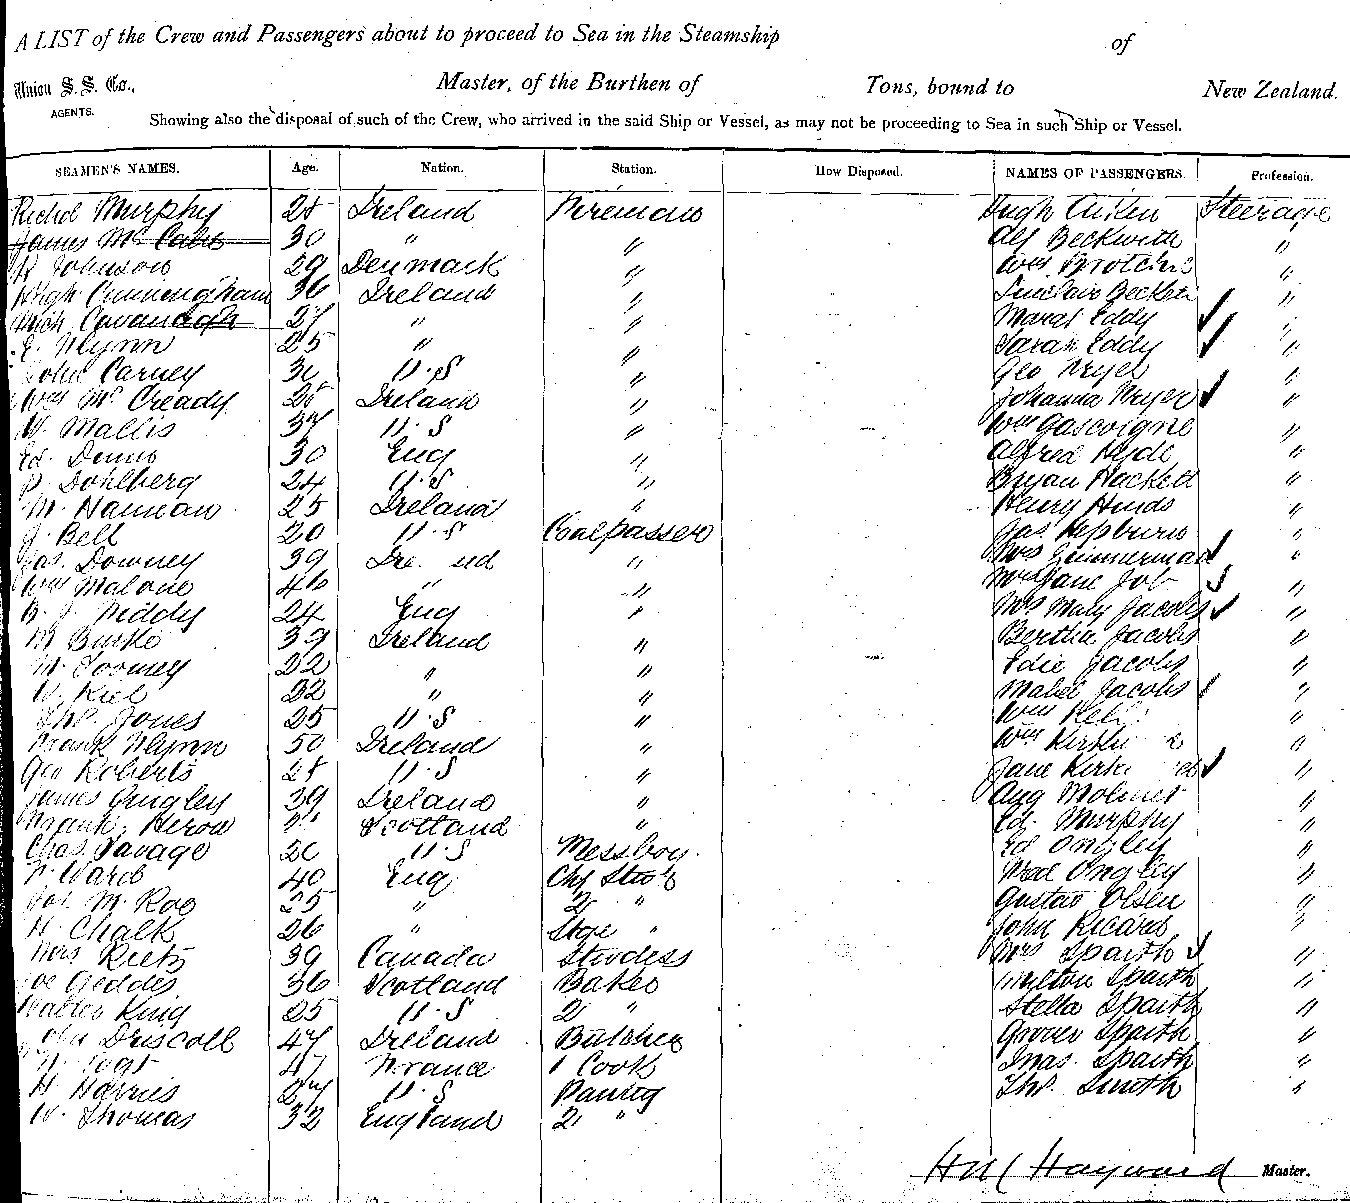 A LIST of the Crew and Passengers about to proceed to Sea in the Steamship of
Union S. S. Co., Master, of the Burthen of Tons, bound to New Zealand.
AGENTS.
Showing also the disposal of such of the Crew, who arrived in the said Ship or Vessel, as may not be proceeding to Sea in such Ship or Vessel.
SEAMEN'S NAMES. Age. Nation. Station. How Disposed. NAMES OF PASSENGERS. Profession.
Richd Murphy 28 Ireland Fireman Hugh Aitken Steerage
James McCabe 30 " " Alf Beckwith "
Johnson 29 Denmark " Wm "
Hugh Cunningham 36 Ireland " Sinclair Beckett "
Mich Cavanagh 27 " " Marct Eddy ✓ "
E. Flynn 25 " " Sarah Eddy ✓ "
John Carney 30 U.S " Geo Fryer "
Wm McCready 28 Ireland " Johanna Fryer ✓ "
W. Mallis 37 U.S " Wm Gascoigne "
Ed. Dunn 30 Eng " Alfred Hyde "
P. Dohlberg 24 U.S " Bryan Hackett "
M. Hannan 25 Ireland " Henry Hinds "
J. Bell 20 U.S Coalpasser Jas. Hepburn "
Jas. Downey 39 Ire nd " Mrs Zimmerman ✓ "
Wm Malone 46 " " Mrs Jane Job ✓ "
B. J. Fiddy 24 Eng " Mrs Mary Jacobs ✓ "
M Burke 39 Ireland " Bertha Jacobs "
M. Toomey 22 " " Edie Jacobs "
Kiel 32 " " Mabel Jacobs ✓ "
Thos. Jones 25 U.S " Wm "
Frank Flynn 50 Ireland " Wm "
Geo Roberts 28 U.S " Jane ✓ "
James Quigley 39 Ireland " Aug "
Frank Scotland " Ed. Murphy "
Chas. Savage 20 U.S Messboy Ed Ongley "
Ward 40 Eng Chf Stwd Fred Ongley "
Jas. M. Rae 25 " 2 " Gustav Olsen "
H. Chalk 26 " Stge " John Ricard "
Mrs Rietz 39 Canada Stwdess Mrs Spaith ✓ "
Joe Geddes 36 Scotland Baker Milton Spaith "
Walter King 25 U.S 2 " Stella Spaith "
John Driscoll 47 Ireland Butcher Grover Spaith "
Vogt 47 France 1 Cook Inas. Spaith "
H Harris 27 U.S Pantry Thos. Smith "
W. Thomas 32 England 2 "
Hayward Master.